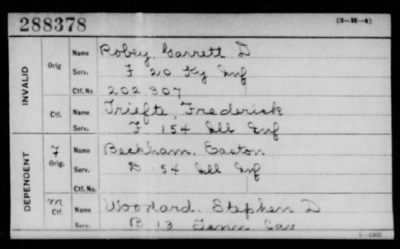 288378
(3-H-4)
INVALID
Orig
Name Robey, Garrett D
Serv. F 20 Ky Inf
Ctf. No. 202 307
Ctf.
Name Friefte, Frederick
Serv. F 154 Ill Inf
DEPENDENT
F Orig.
Name Beckham, Easton
Serv. D 54 Ill Inf
Ctf. No.
M Ctf.
Name Woodard, Stephen D
B 13 Tenn Cav